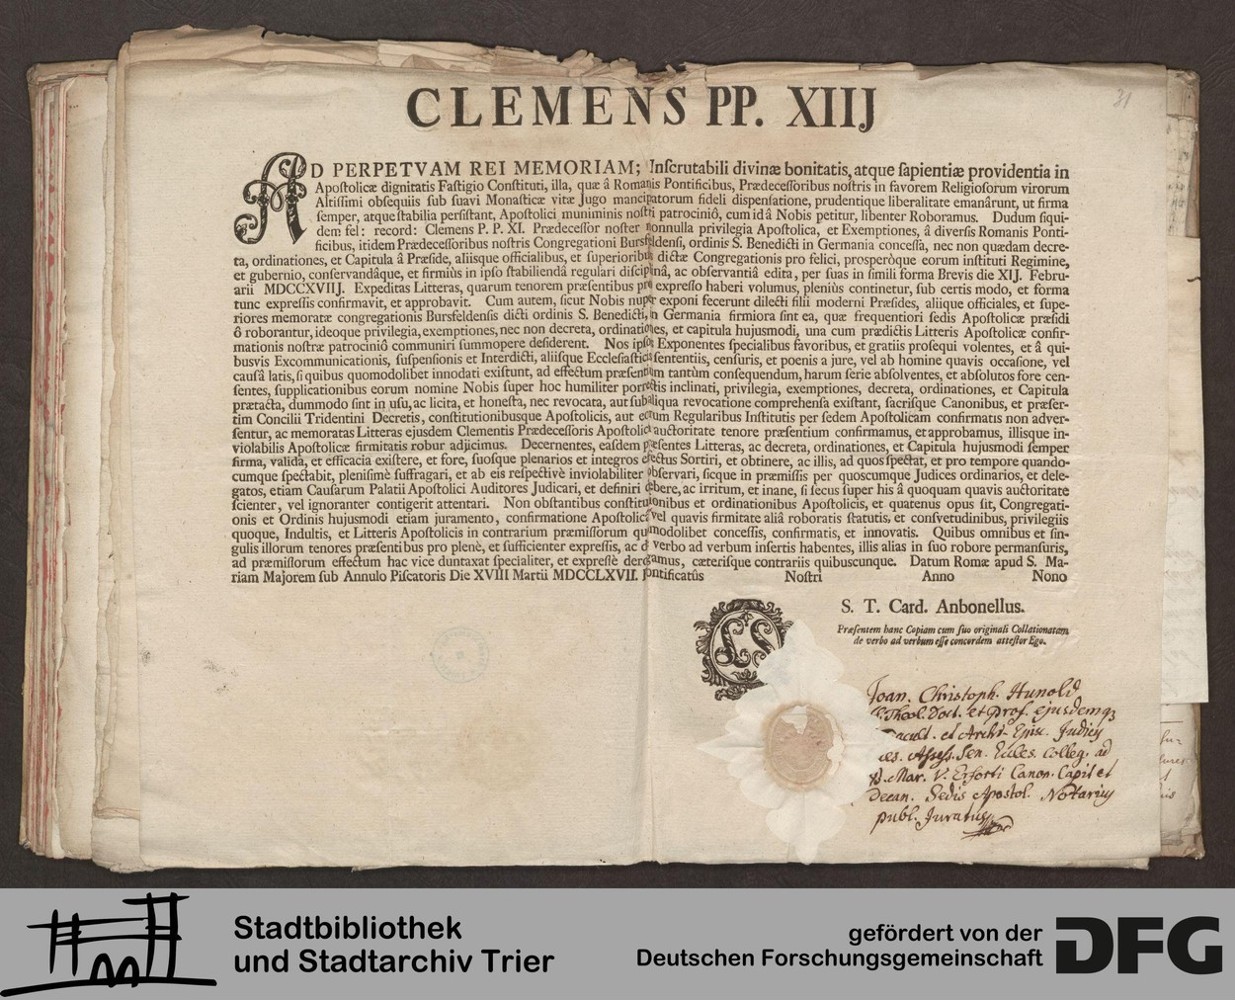 31
CLEMENS PP. XIIJ
AD PERPETVAM REI MEMORIAM; Inſcrutabili divinæ bonitatis, atque ſapientiæ providentia in
Apoſtolicæ dignitatis Faſtigio Conſtituti, illa, quæ â Romanis Pontificibus, Prædeceſſoribus noſtris in favorem Religioſorum virorum
Altiſſimi obſequiis ſub ſuavi Monaſticæ vitæ Jugo mancipatorum fideli diſpenſatione, prudentique liberalitate emanârunt, ut firma
ſemper, atque ſtabilia perſiſtant, Apoſtolici muniminis noſtri patrociniô, cum id â Nobis petitur, libenter Roboramus. Dudum ſiqui-
dem fel: record: Clemens P. P. XI. Prædeceſſor noſter nonnulla privilegia Apoſtolica, et Exemptiones, â diverſis Romanis Ponti-
ficibus, itidem Prædeceſſoribus noſtris Congregationi Bursfeldenſi, ordinis S. Benedicti in Germania conceſſa, nec non quædam decre-
ta, ordinationes, et Capitula â Præſide, aliisque officialibus, et ſuperioribus dictæ Congregationis pro felici, prosperòque eorum inſtituti Regimine,
et gubernio, conſervandâque, et firmiùs in ipſo ſtabiliendâ regulari diſciplinâ, ac obſervantiâ edita, per ſuas in ſimili forma Brevis die XIJ. Febru-
arii MDCCXVIIJ. Expeditas Litteras, quarum tenorem præſentibus pro expreſſo haberi volumus, pleniùs continetur, ſub certis modo, et forma
tunc expreſſis confirmavit, et approbavit. Cum autem, ſicut Nobis nuper exponi fecerunt dilecti filii moderni Præſides, aliique officiales, et ſupe-
riores memoratæ congregationis Bursfeldenſis dicti ordinis S. Benedicti, in Germania firmiora ſint ea, quæ frequentiori ſedis Apoſtolicæ præſidi
ô roborantur, ideoque privilegia, exemptiones, nec non decreta, ordinationes, et capitula hujusmodi, una cum prædictis Litteris Apoſtolicæ confir-
mationis noſtræ patrociniô communiri ſummopere deſiderent. Nos ipſos Exponentes ſpecialibus favoribus, et gratiis proſequi volentes, et â qui-
busvis Excommunicationis, ſuſpenſionis et Interdicti, aliisque Eccleſiaſticis ſententiis, cenſuris, et poenis a jure, vel ab homine quavis occaſione, vel
cauſâ latis, ſi quibus quomodolibet innodati exiſtunt, ad effectum præſentium tantùm conſequendum, harum ſerie abſolventes, et abſolutos fore cen-
ſentes, ſupplicationibus eorum nomine Nobis ſuper hoc humiliter porrectis inclinati, privilegia, exemptiones, decreta, ordinationes, et Capitula
prætacta, dummodo ſint in uſu, ac licita, et honeſta, nec revocata, aut ſub aliqua revocatione comprehenſa exiſtant, ſacriſque Canonibus, et præſer-
tim Concilii Tridentini Decretis, conſtitutionibusque Apoſtolicis, aut eorum Regularibus Inſtitutis per ſedem Apoſtolicam confirmatis non adver-
ſentur, ac memoratas Litteras ejusdem Clementis Prædeceſſoris Apoſtolicâ auctoritate tenore præſentium confirmamus, et approbamus, illisque in-
violabilis Apoſtolicæ firmitatis robur adjicimus. Decernentes, easdem præſentes Litteras, ac decreta, ordinationes, et Capitula hujusmodi ſemper
firma, valida, et efficacia exiſtere, et fore, ſuoſque plenarios et integros effectus Sortiri, et obtinere, ac illis, ad quos ſpectat, et pro tempore quando-
cumque ſpectabit, pleniſimè ſuffragari, et ab eis reſpectivè inviolabiliter obſervari, ſicque in præmiſſis per quoscumque Judices ordinarios, et dele-
gatos, etiam Cauſarum Palatii Apoſtolici Auditores Judicari, et definiri debere, ac irritum, et inane, ſi ſecus ſuper his â quoquam quavis auctoritate
ſcienter, vel ignoranter contigerit attentari. Non obſtantibus conſtitutionibus et ordinationibus Apoſtolicis, et quatenus opus ſit, Congregati-
onis et Ordinis hujusmodi etiam juramento, confirmatione Apoſtolicâ vel quavis firmitate aliâ roboratis ſtatutis, et conſvetudinibus, privilegiis
quoque, Indultis, et Litteris Apoſtolicis in contrarium præmiſſorum quomodolibet conceſſis, confirmatis, et innovatis. Quibus omnibus et ſin-
gulis illorum tenores præſentibus pro plenè, et ſufficienter expreſſis, ac de verbo ad verbum inſertis habentes, illis alias in ſuo robore permanſuris,
ad præmiſſorum effectum hac vice duntaxat ſpecialiter, et expreſſè derogamus, cæteriſque contrariis quibuscunque. Datum Romæ apud S. Ma-
riam Majorem ſub Annulo Piſcatoris Die XVIII Martii MDCCLXVII. Pontificatûs Noſtri Anno Nono
S. T. Card. Anbonellus.
LS
Præſentem hanc Copiam cum ſuo originali Collationatam
de verbo ad verbum eſſe concordem atteſtor Ego.
Joan. Christoph. Hunold
Theol. Doct. et Prof. ejusdemq
Facult. et Archi-Episc. Judicij
Assess. Sen. Eccles. Colleg. ad
B. Mar. V. Erforti Canon. Capit et
Decan. Sedis Apostol. Notarius
publ. Juratus
Stadtbibliothek
und Stadtarchiv Trier
gefördert von der
Deutschen Forschungsgemeinschaft
DFG